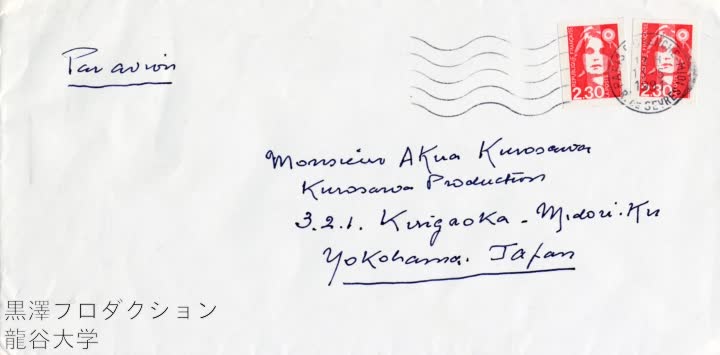 Par avion
2.30
2.30
Monsieur Akira Kurosawa
Kurosawa Production
3.2.1. Kirigaoka - Midori-Ku
Yokohama. Japan
黒澤フロダクション
龍谷大学